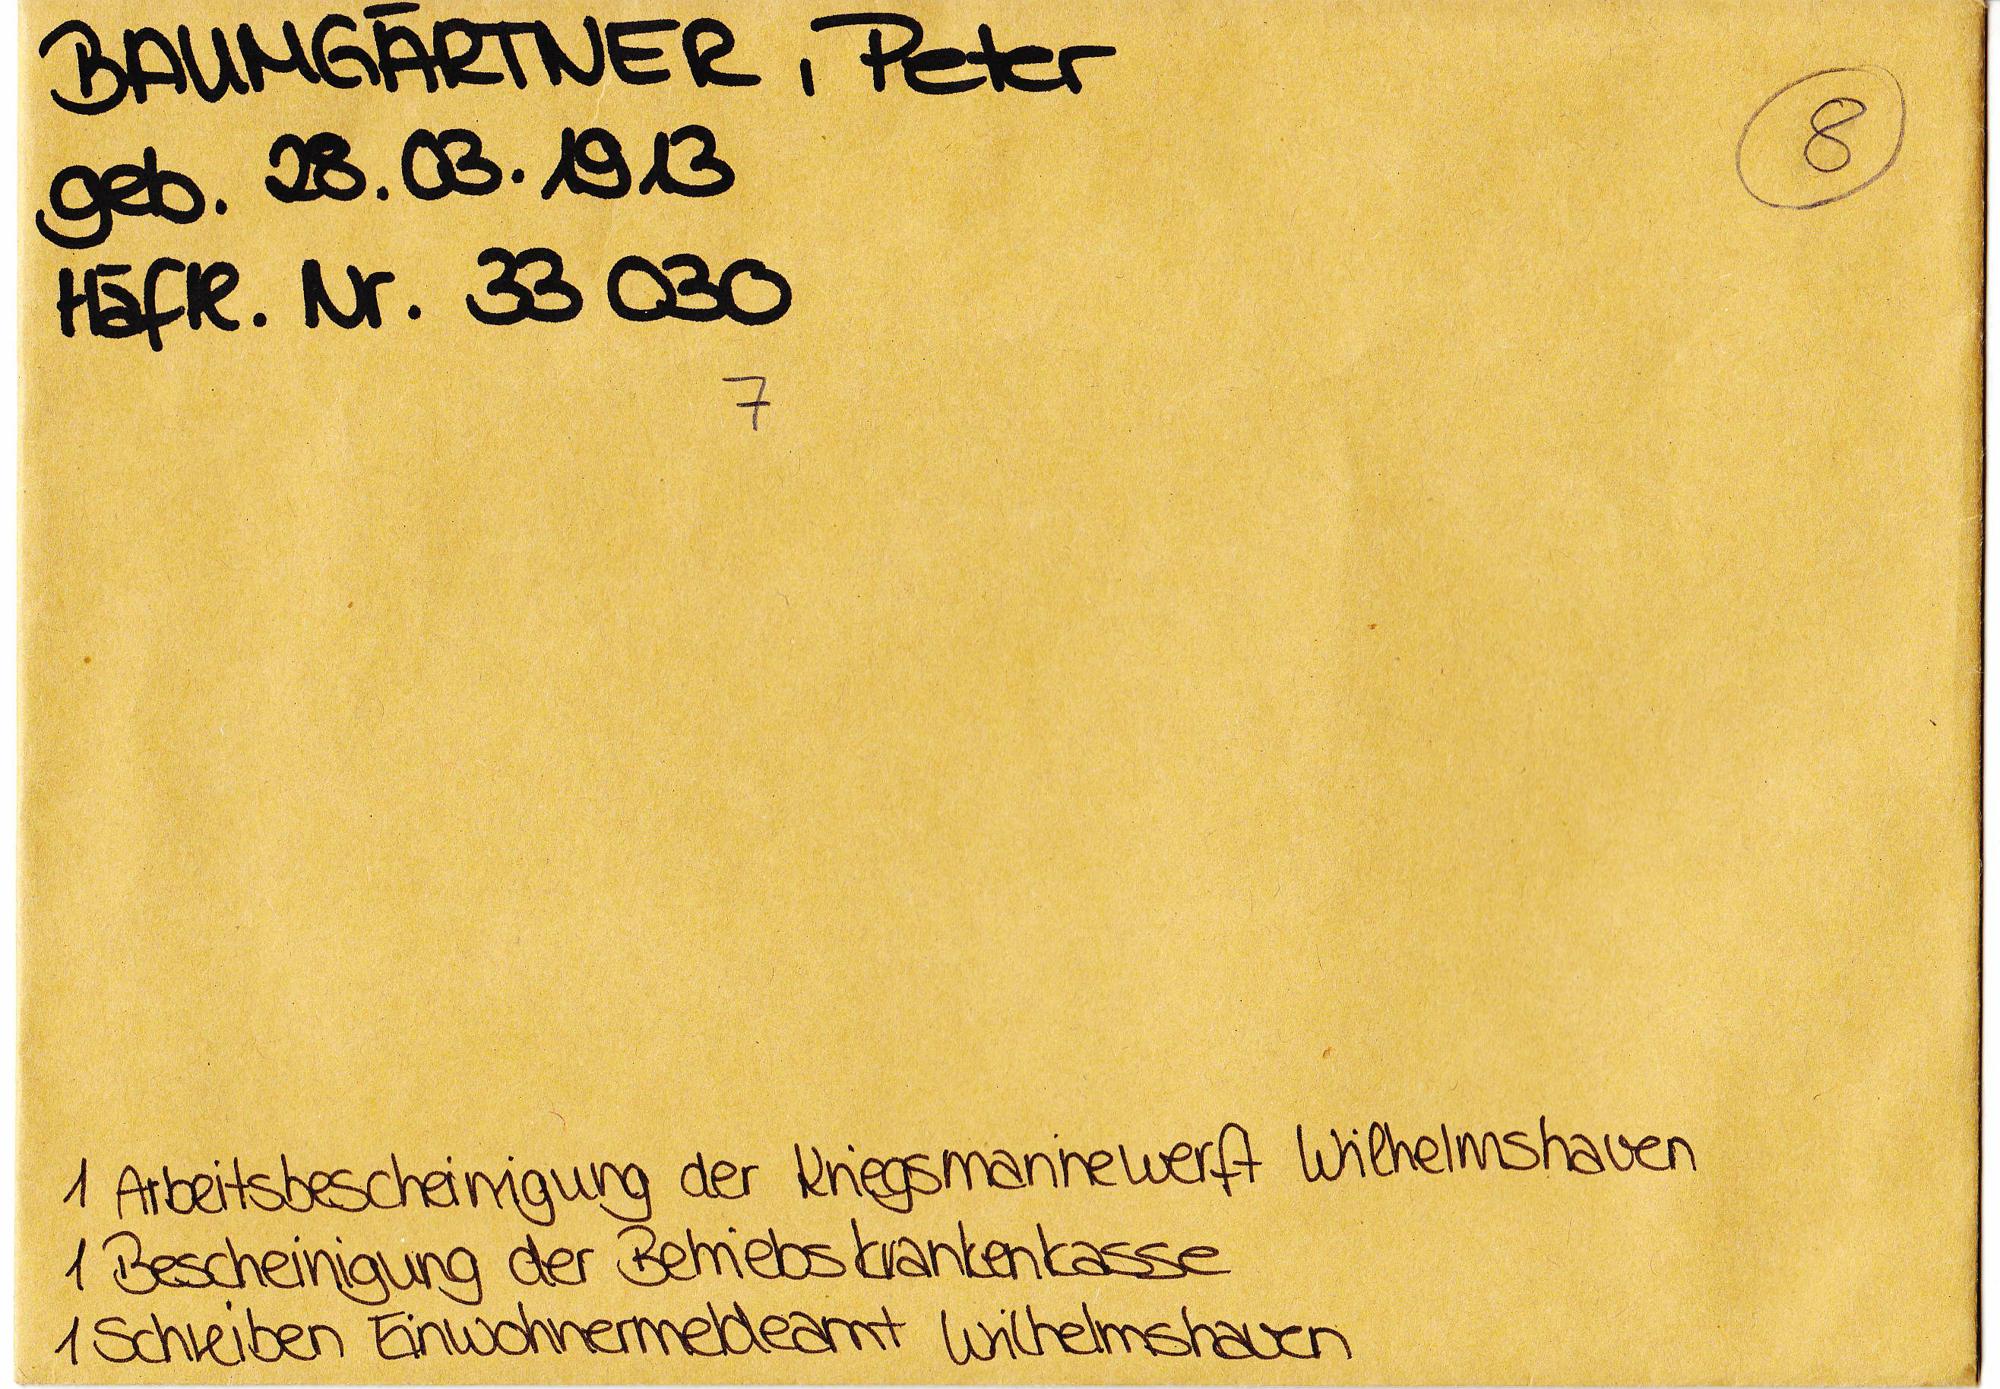 BAUMGÄRTNER, Peter
8
geb. 28.03.1913
Häftl. Nr. 33 030
7
1 Arbeitsbescheinigung der Kriegsmarinewerft Wilhelmshaven
1 Bescheinigung der Betriebskrankenkasse
1 Schreiben Einwohnermeldeamt Wilhelmshaven